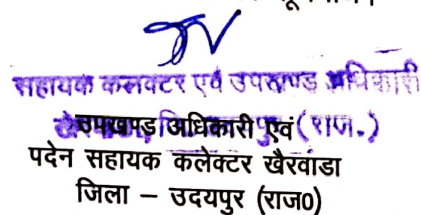 सहायक कलक्टर एवं उपखण्ड अधिकारी
(राज.)
उपखण्ड अधिकारी एवं
पदेन सहायक कलेक्टर खैरवाडा
जिला – उदयपुर (राज0)